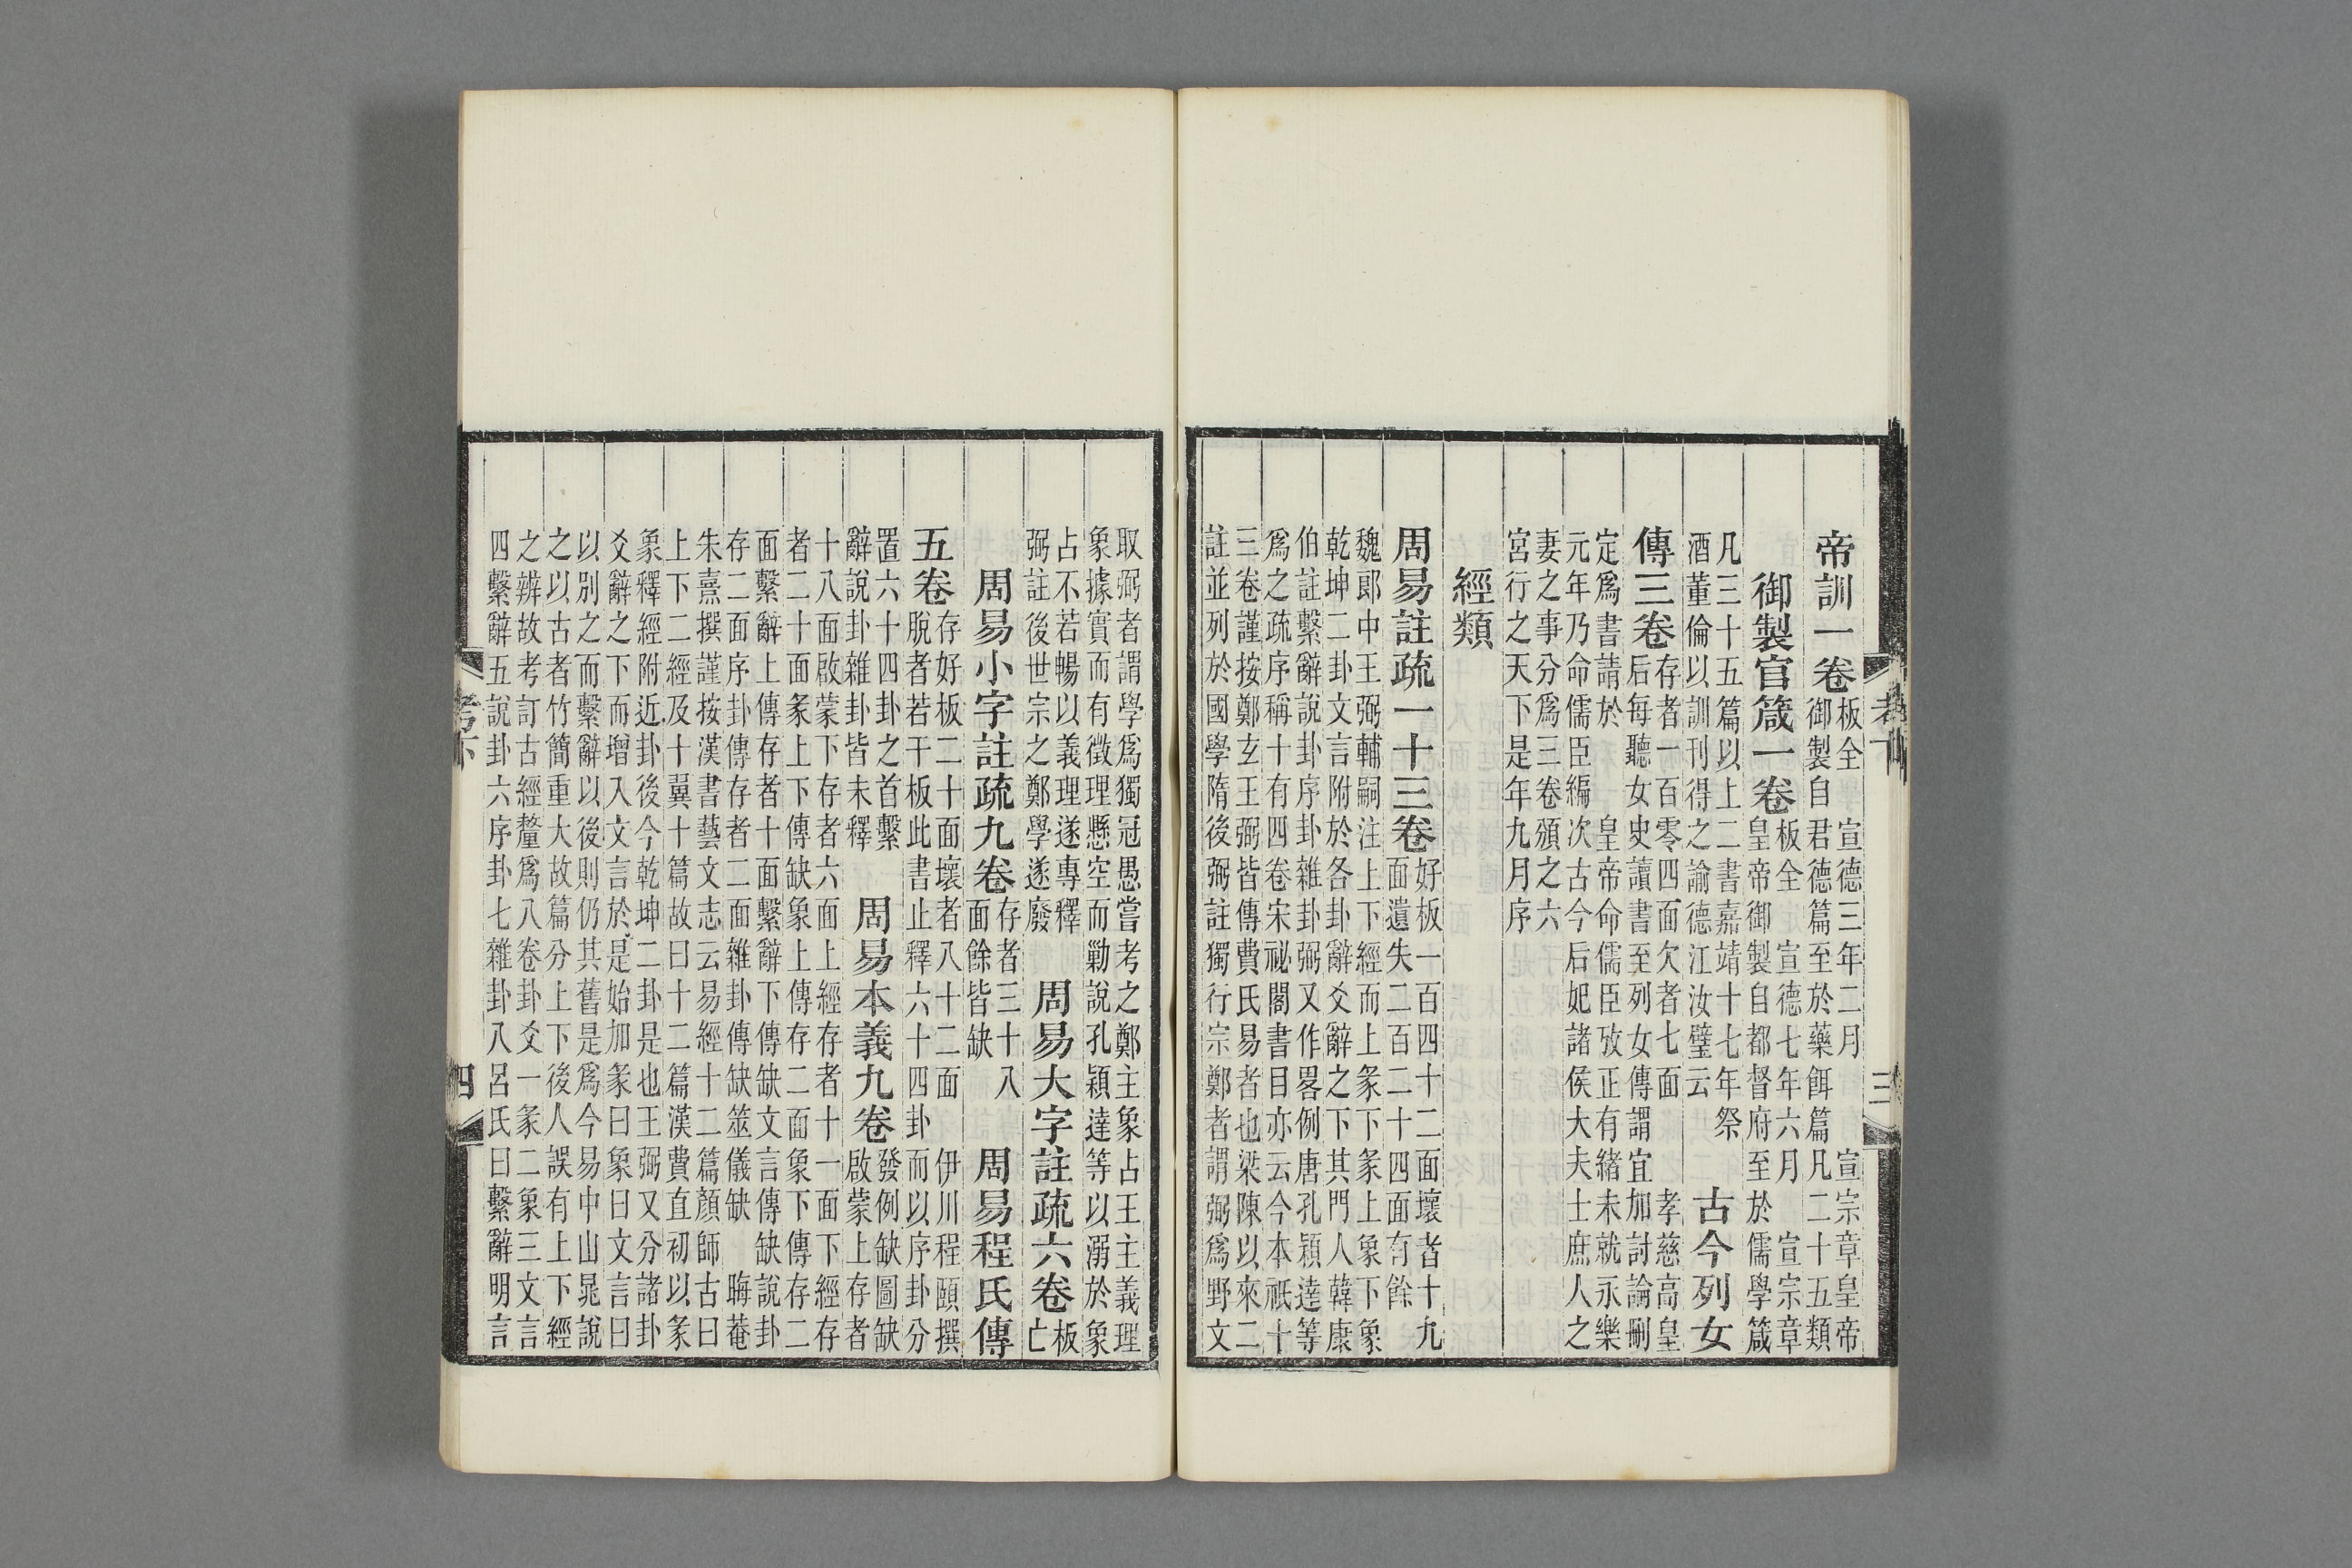 帝訓一卷
板全　宣德三年二月　宣宗章皇帝
御製自君德篇至於藥餌篇凡二十五類
御製官箴一卷
板全　宣德七年六月　宣宗章
皇帝御製自都督府至於儒學箴
凡三十五篇以上二書嘉靖十七年祭
酒董倫以訓刊得之諭德江汝璧云
古今列女
傳三卷
存者一百零四面欠者七面　孝慈高皇
后每聽女史讀書至列女傳謂宜加討論刪
定爲書請於　皇帝命儒臣攷正有緒未就永樂
元年乃命儒臣編次古今后妃諸侯大夫士庶人之
妻之事分爲三卷頒之六
宮行之天下是年九月序
經類
周易註疏一十三卷
好板一百四十二面壞者十九
面遺失二百二十四面有餘
魏郎中王弼輔嗣注上下經而上彖下彖上象下象
乾坤二卦文言附於各卦辭爻辭之下其門人韓康
伯註繫辭說卦序卦雜卦弼又作畧例唐孔穎達等
爲之疏序稱十有四卷宋祕閣書目亦云今本祇十
三卷謹按鄭玄王弼皆傳費氏易者也梁陳以來二
註並列於國學隋後弼註獨行宗鄭者謂弼爲野文
考下
三
取弼者謂學爲獨冠愚嘗考之鄭主象占王主義理
象據實而有徵理懸空而勦說孔穎達等以溺於象
占不若暢以義理遂專釋
弼註後世宗之鄭學遂廢
周易大字註疏六卷
板
亡
周易小字註疏九卷
存者三十八
面餘皆缺
周易程氏傳
五卷
存好板二十面壞者八十二面　伊川程頤撰
脫者若干板此書止釋六十四卦而以序卦分
置六十四卦之首繫
辭說卦雜卦皆未釋
周易本義九卷
發例缺圖缺
啟蒙上存者
十八面啟蒙下存者六面上經存者十一面下經存
者二十面彖上下傳缺象上傳存二面象下傳存二
面繫辭上傳存者十面繫辭下傳缺文言傳缺說卦
存二面序卦傳存者二面雜卦傳缺筮儀缺　晦菴
朱熹撰謹按漢書藝文志云易經十二篇顏師古曰
上下二經及十翼十篇故曰十二篇漢費直初以彖
象釋經附近卦後今乾坤二卦是也王弼又分諸卦
爻辭之下而增入文言於是始加彖曰象曰文言曰
以別之而繫辭以後則仍其舊是爲今易中山晁說
之以古者竹簡重大故篇分上下後人誤有上下經
之辨故考訂古經釐爲八卷卦爻一彖二象三文言
四繫辭五說卦六序卦七雜卦八呂氏曰繫辭明言
考下
四